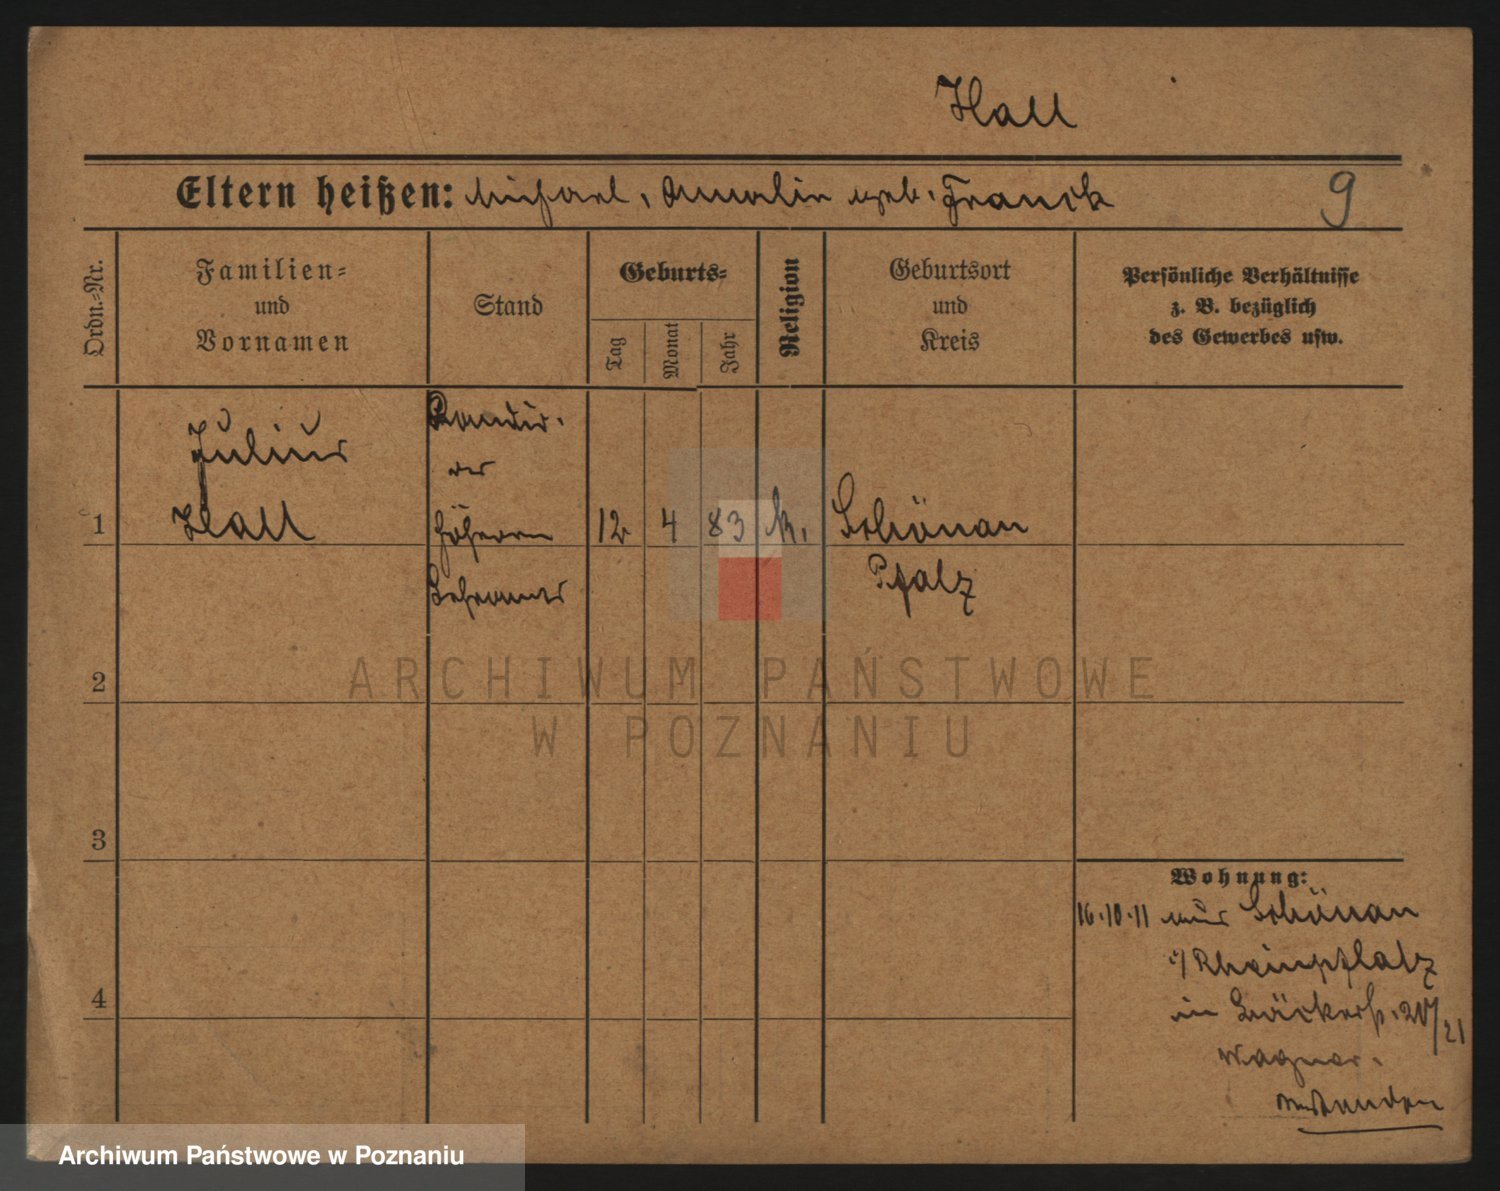 Hall
Eltern heißen: Michael, Amalie geb. Franck
9
Ordn.=Nr.
Familien=
und
Vornamen
Stand
Geburts=
Tag
Monat
Jahr
Religion
Geburtsort
und
Kreis
Persönliche Verhältnisse
z. B. bezüglich
des Gewerbes usw.
Julius
Hall
Kandid.
des
höheren
Lehramts
1
12 4 83 k. Schönau
Pfalz
2
3
4
Wohnung:
16.10.11 aus Schönau
i/Rheinpfalz
in Bäckerst. 20/21
Wagner.
ARCHIWUM PAŃSTWOWE
W POZNANIU
Archiwum Państwowe w Poznaniu